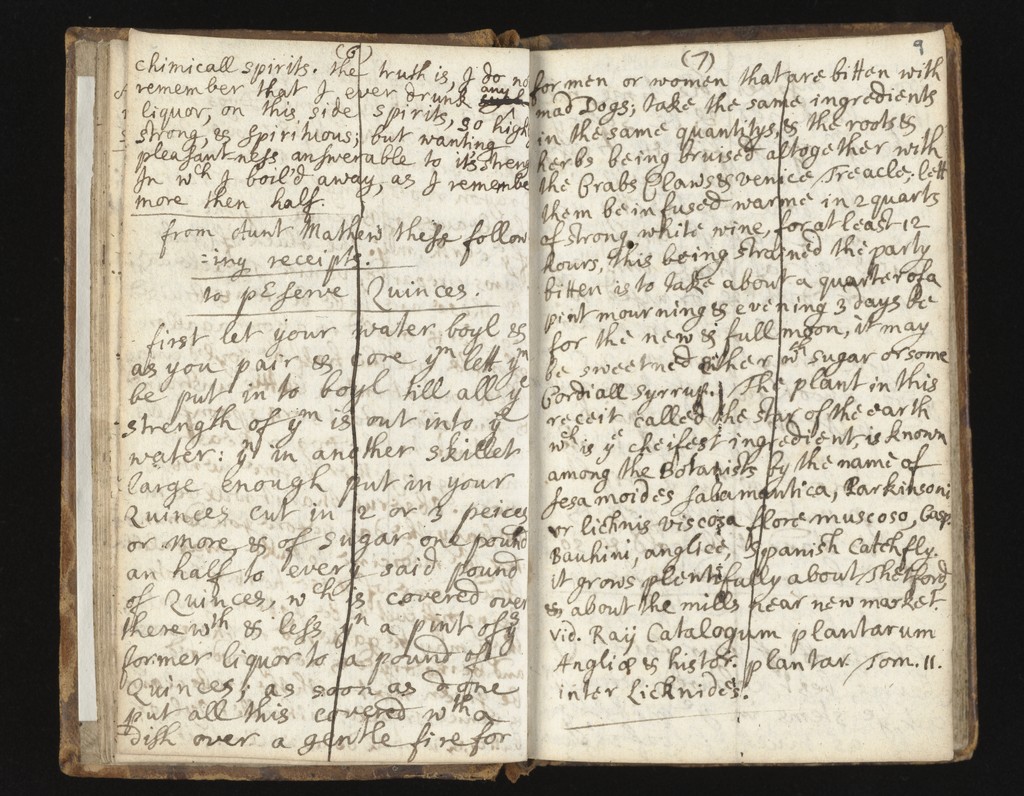 (6)
chimicall spirits. the truth is, I do no
remember that I ever drunk any
liquor, on this side spirits, so high
strong, & spirituous; but wanting
pleasantness answerable to its streng
In wch I boil'd away, as I remembe
more then half.
from Aunt Mathew these follow
=ing receipts.
to pserve Quinces.
first let your water boyl &
as you pair & core ym lett ym
be put in to boyl till all ye
strength of ym is out into ye
water: yn in another skillet
large enough put in your
Quinces cut in 2 or 3 peices
or more & of sugar one pound
an half to every said pound
of Quinces, wch is covered over
therewth & less yn a pint of ye
former liquor to a pound of
Quinces; as soon as done
put all this covered wth a
dish over a gentle fire for
(7)
9
for men or women that are bitten with
mad Dogs; take the same ingredients
in the same quantitys, & the roots &
herbs being bruised altogether with
the Crabs Claws & venice Treacle; lett
them be infused warme in 2 quarts
of strong white wine, for at least 12
hours, this being strained the party
bitten is to take about a quarter of a
pint mourning & evening 3 days be
for the new & full moon, it may
be sweetned either wth sugar or some
Cordiall syrrup. The plant in this
receit called the star of the earth
wch is ye cheifest ingredient, is known
among the Botanists by the name of
sesamoides salamantica, Parkinsoni
or lichnis viscosa flore muscoso, Casp.
Bauhini, anglice, Spanish Catchfly.
it grows plentifully about Thetford
& about the mills near new market.
vid. Ray Catalogum plantarum
Angliæ & histor. plantar. Tom. 11.
inter Licknides.